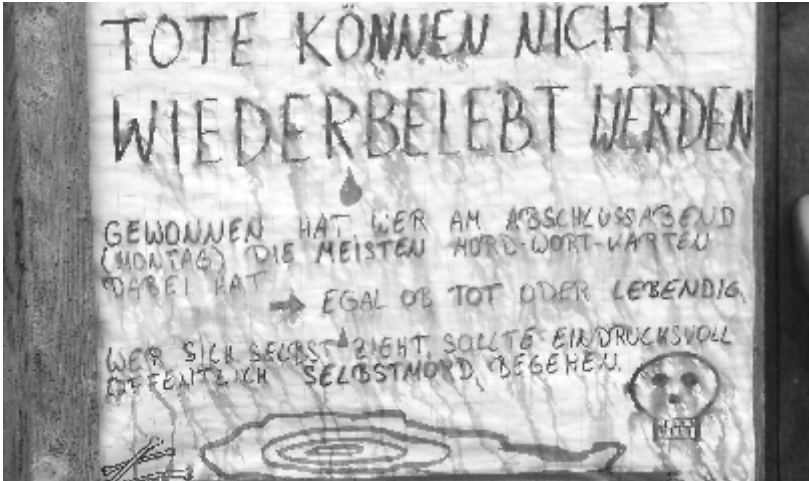 TOTE KÖNNEN NICHT
WIEDERBELEBT WERDEN
GEWONNEN HAT, WER AM ABSCHLUSSABEND
(MONTAG) DIE MEISTEN MORD-WORT-KARTEN
DABEI HAT
→ EGAL OB TOT ODER LEBENDIG.
WER SICH SELBST ZIEHT, SOLLTE EINDRUCKSVOLL
ÖFFENTLICH SELBSTMORD BEGEHEN.